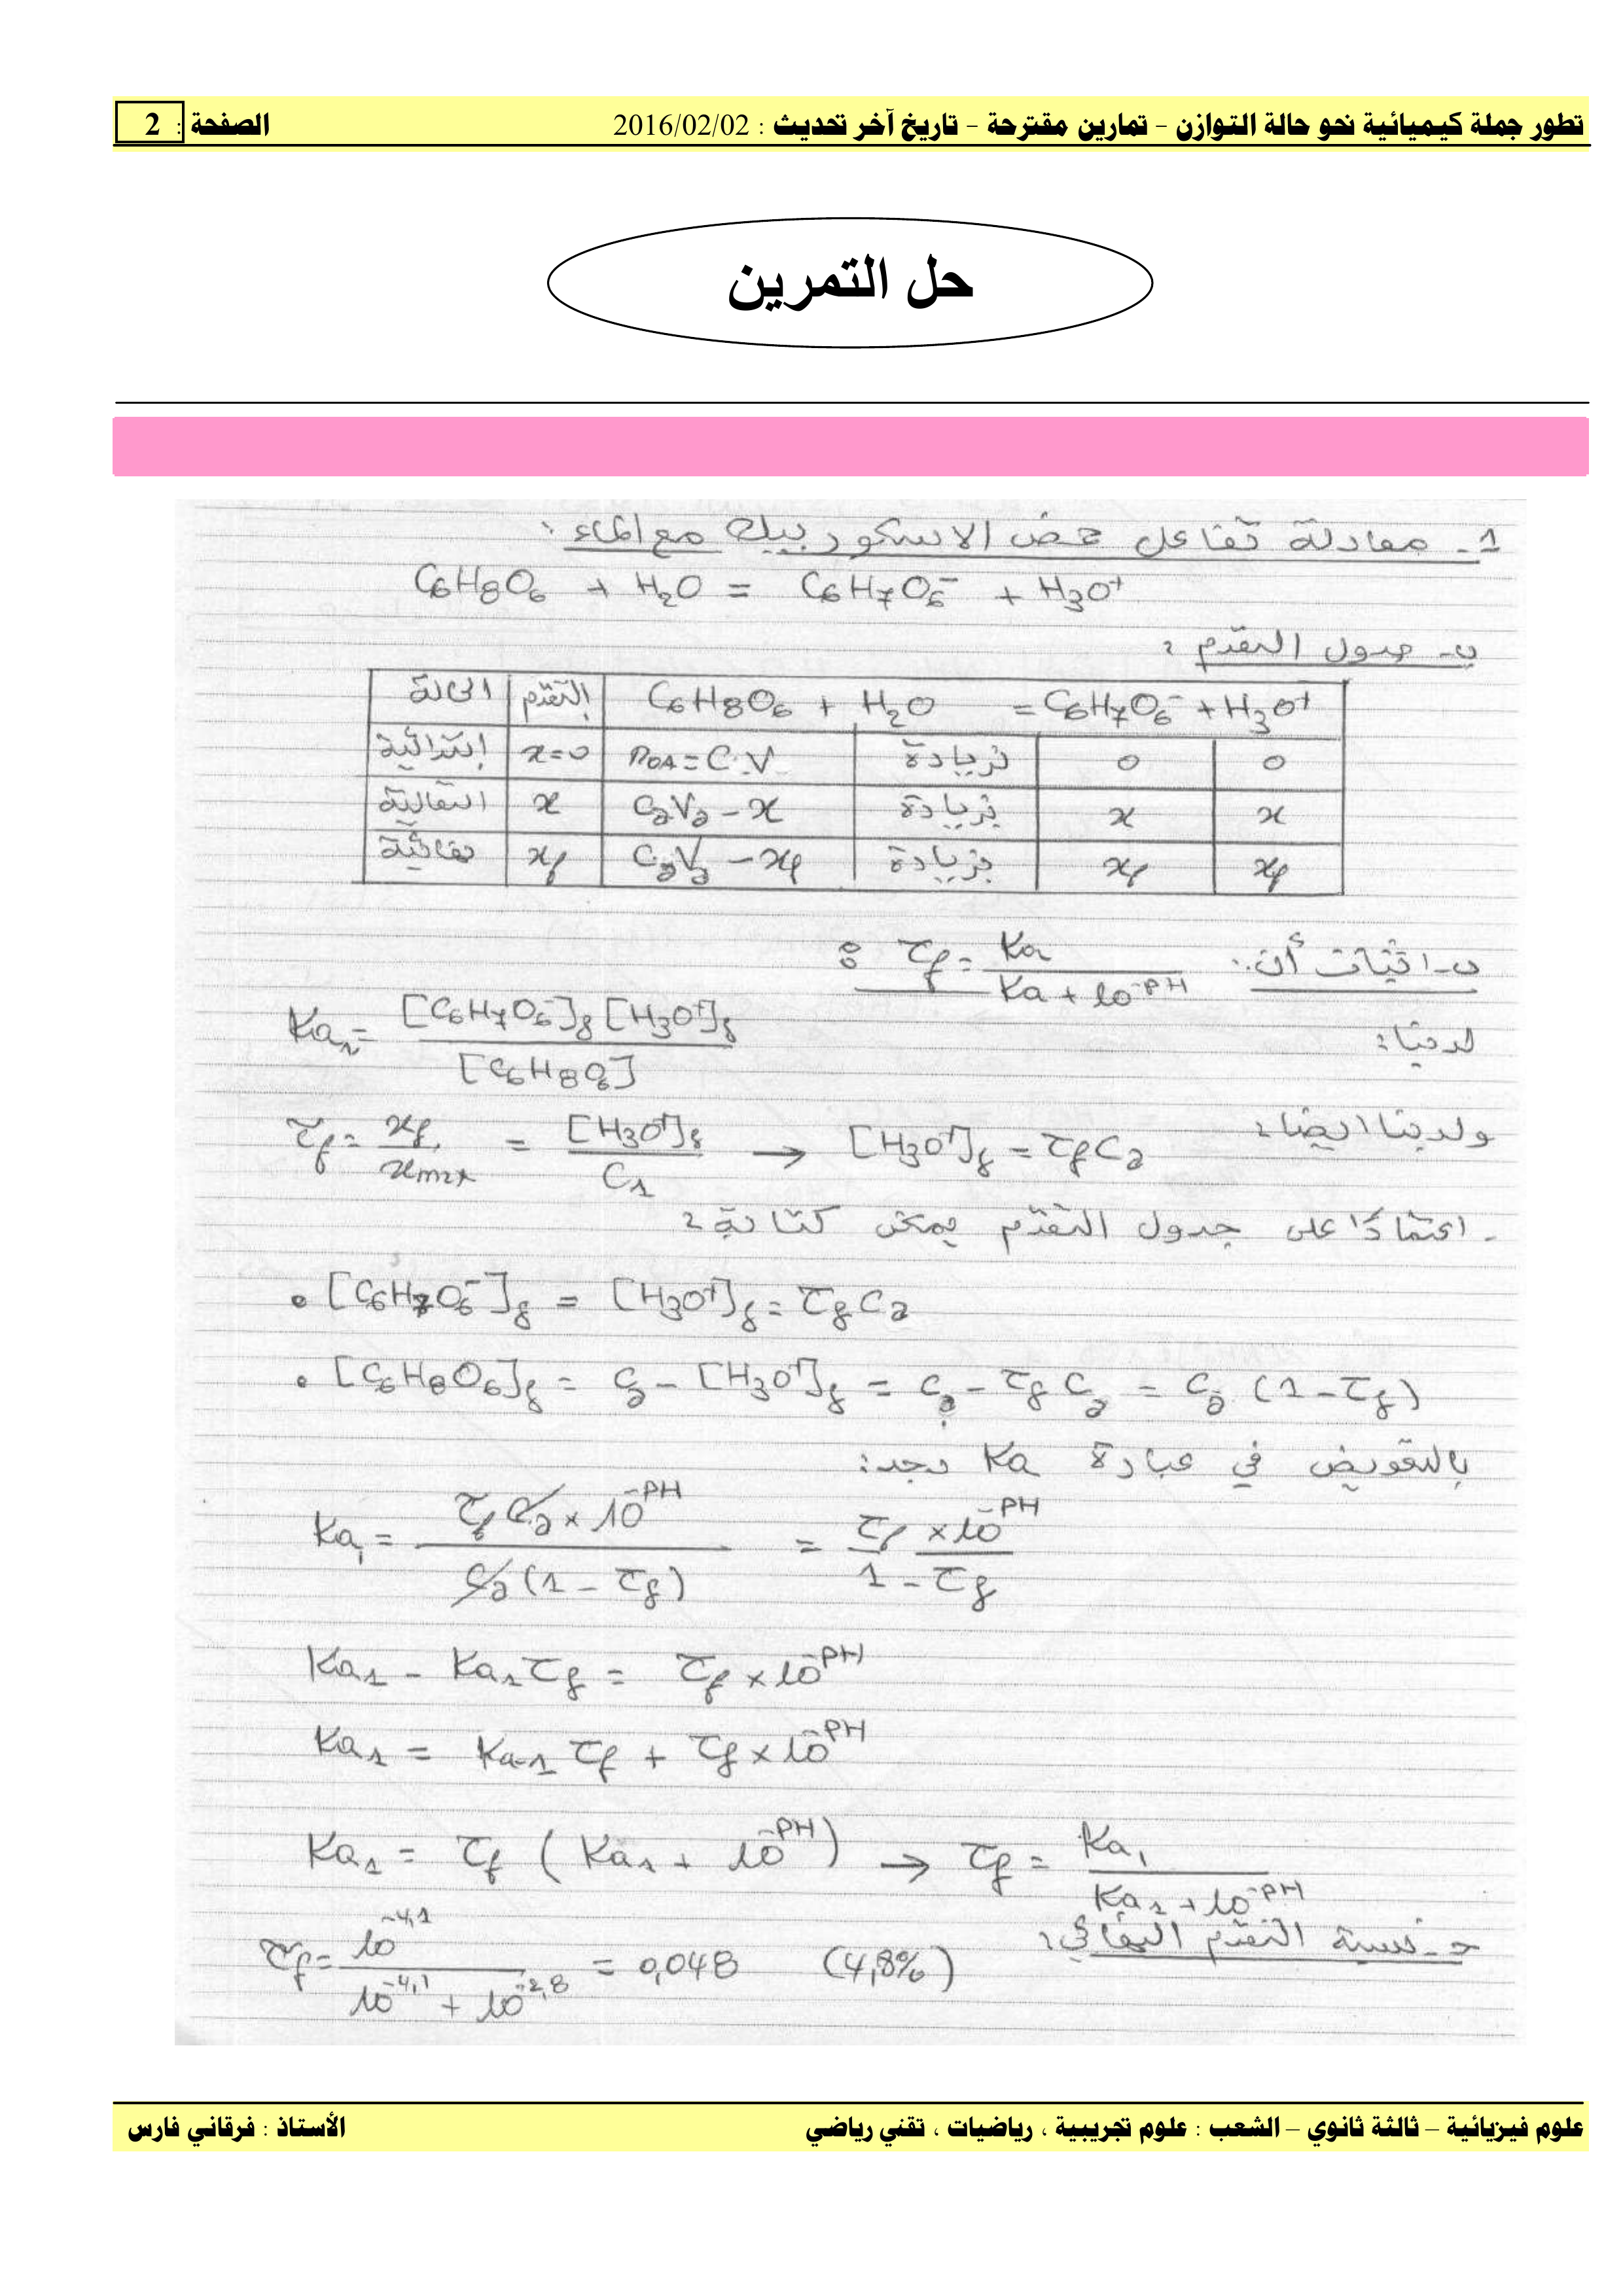 تطور جملة كيميائية نحو حالة التوازن – تمارين مقترحة – تاريخ آخر تحديث : 2016/02/02 الصفحة : 2
حل التمرين
1- معادلة تفاعل حمض الاسكوربيك مع الماء :
C6H8O6 + H2O = C6H7O6⁻ + H3O⁺
ب- جدول التقدم :
الحالة | التقدم | C6H8O6 + H2O = C6H7O6⁻ + H3O⁺
إبتدائية | x=0 | n0A = C.V | بزيادة | 0 | 0
انتقالية | x | CaVa - x | بزيادة | x | x
نهائية | xf | CaVa - xf | بزيادة | xf | xf
ب- اثبات أن : τf = Ka / (Ka + 10^-PH) :
لدينا : Ka1 = [C6H7O6⁻]f [H3O⁺]f / [C6H8O6]
ولدينا ايضا : τf = xf / xmax = [H3O⁺]f / C1 → [H3O⁺]f = τf Ca
- اعتمادا على جدول التقدم يمكن كتابة :
• [C6H7O6⁻]f = [H3O⁺]f = τf Ca
• [C6H8O6]f = Ca - [H3O⁺]f = Ca - τf Ca = Ca (1 - τf)
بالتعويض في عبارة Ka نجد :
Ka1 = τf Ca × 10^-PH / Ca (1 - τf) = τf × 10^-PH / 1 - τf
Ka1 - Ka1 τf = τf × 10^-PH
Ka1 = Ka1 τf + τf × 10^-PH
Ka1 = τf (Ka1 + 10^-PH) → τf = Ka1 / (Ka1 + 10^-PH)
ج- نسبة التقدم النهائي :
τf = 10^-4,1 / (10^-4,1 + 10^-2,8) = 0,048 (4,8%)
علوم فيزيائية – ثالثة ثانوي – الشعب : علوم تجريبية ، رياضيات ، تقني رياضي الأستاذ : فرقاني فارس